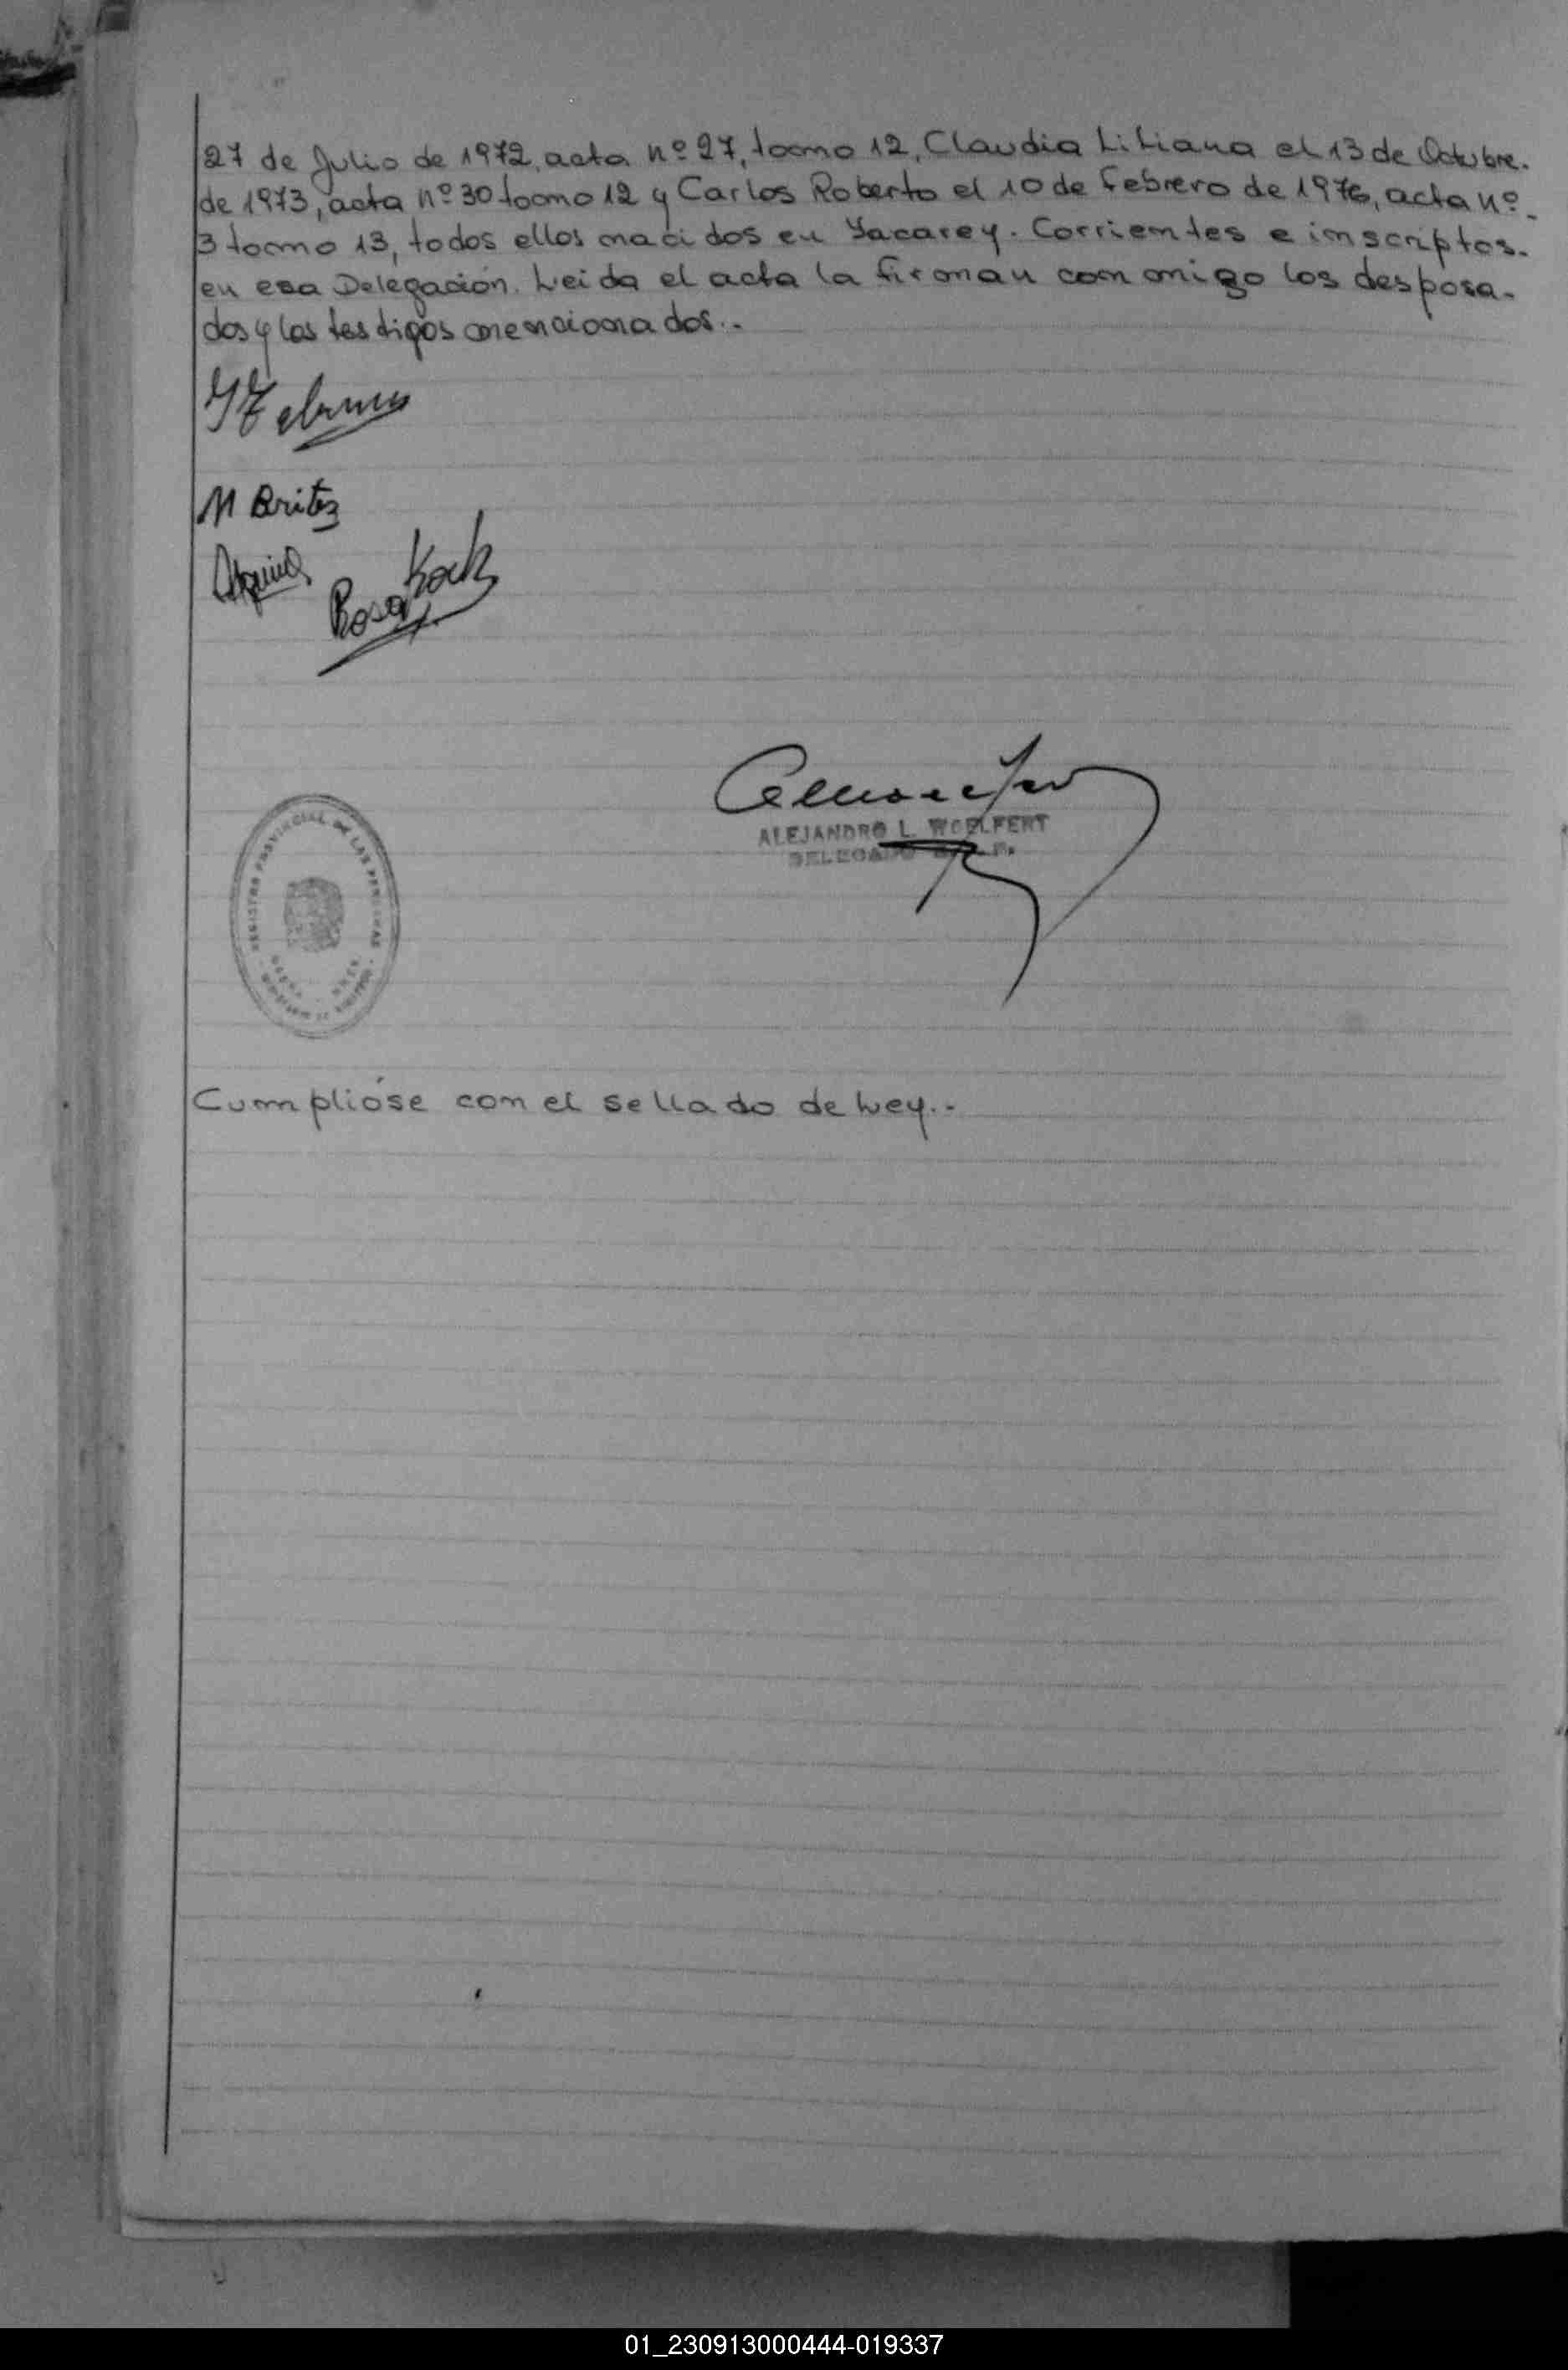 27 de Julio de 1972, acta nº 27, tomo 12, Claudia Liliana el 13 de Octubre.
de 1973, acta nº 30 tomo 12 y Carlos Roberto el 10 de Febrero de 1976, acta nº.
3 tomo 13, todos ellos nacidos en Yacarey. Corrientes e inscriptos.
en esa Delegación. Leida el acta la firman conmigo los desposa-
dos y los testigos mencionados.-
M Britez
Aquino
Rosa Koch
ALEJANDRO L. WOELFERT
DELEGADO
REGISTRO PROVINCIAL DE LAS PERSONAS
Cumplióse con el sellado de Ley.-
01_230913000444-019337